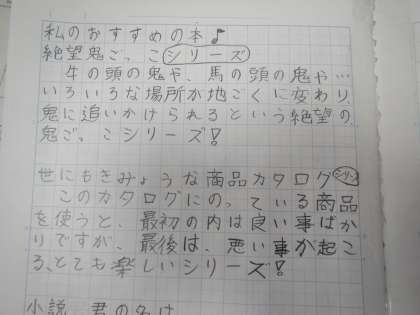 私のおすすめの本♪
絶望鬼ごっこシリーズ
牛の頭の鬼や、馬の頭の鬼や…
いろいろな場所が地ごくに変わり、
鬼に追いかけられるという絶望の
鬼ごっこシリーズ!
世にもきみょうな商品カタログシリーズ
このカタログにのっている商品
を使うと、最初の内は良い事ばか
りですが、最後は、悪い事が起こ
る、とても楽しいシリーズ!
小説 君の名は